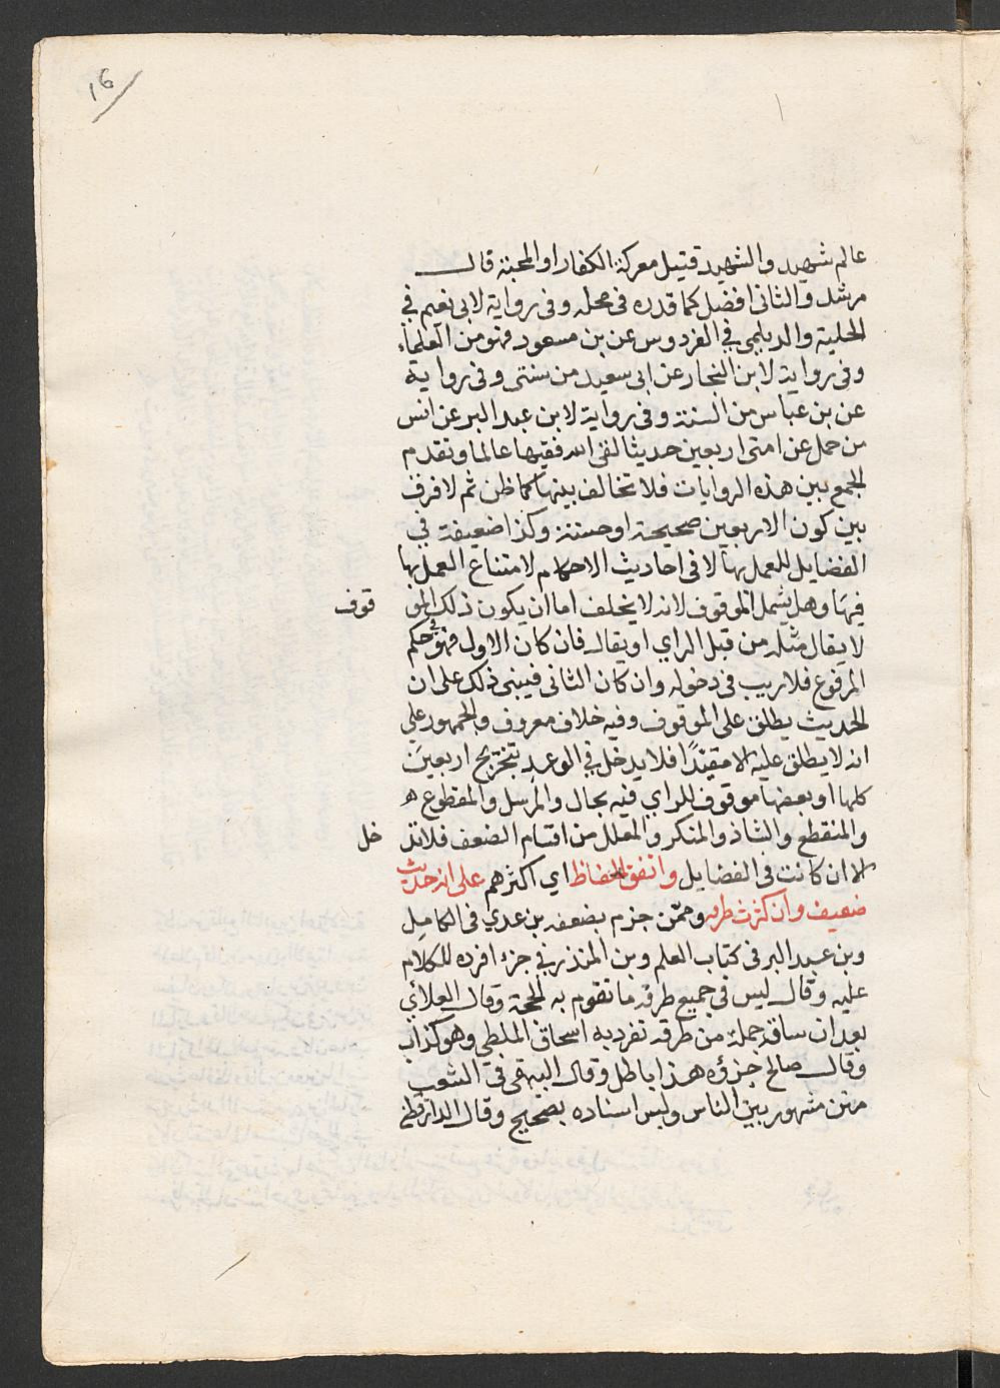 16
عالم شهيد والشهيد قتيل معركة الكفار او المحبة قال
مرشد والثاني افضل كما قدره في محله وفي رواية لابي نعيم في
الحلية والديلمي في الفردوس عن بن مسعود فهو من العلماء
وفي رواية لابن النجار عن ابي سعيد من سنتي وفي رواية
عن بن عباس من السنة وفي رواية لابن عبد البر عن انس
من حمل عن امتي اربعين حديثا لقي الله فقيها عالما وتقدم
الجمع بين هذه الروايات فلا تخالف بينها كما ظن ثم لا فرق
بين كون الاربعين صحيحة او حسنة وكذا ضعيفة في
الفضايل للعمل بها لا في احاديث الاحكام لامتناع العمل بها
فيها وهل يشمل الموقوف لانه لا يخلف اما ان يكون ذلك المو قوف
لا يقال مثله من قبل الراي او يقال فان كان الاول فهو في حكم
المرفوع فلا ريب في دخوله وان كان الثاني فيبنى ذلك على ان
الحديث يطلق على الموقوف وفيه خلاف معروف والجمهور على
انه لا يطلق عليه الا مقيدا فلا يدخل في الوعد بتخريج اربعين
كلها او بعضها موقوف للراي فيه بحال والمرسل والمقطوع
والمنقطع والشاذ والمنكر والمعلل من اقسام الضعف فلا تد خل
الا ان كانت في الفضايل واتفق الحفاظ اي اكثرهم على انه حديث
ضعيف وان كثرت طرقه وممن جزم بضعفه بن عدي في الكامل
وبن عبد البر في كتاب العلم وبن المنذر في جزء افرده للكلام
عليه وقال ليس في جميع طرقه ما تقوم به الحجة وقال العلائي
بعد ان ساقه جملة من طرقه تفرد به اسحاق الملطي وهو كذاب
وقال صالح جزؤه هذا باطل وقال البيهقي في الشعب
متن مشهور بين الناس وليس اسناده بصحيح وقال الدارقطني